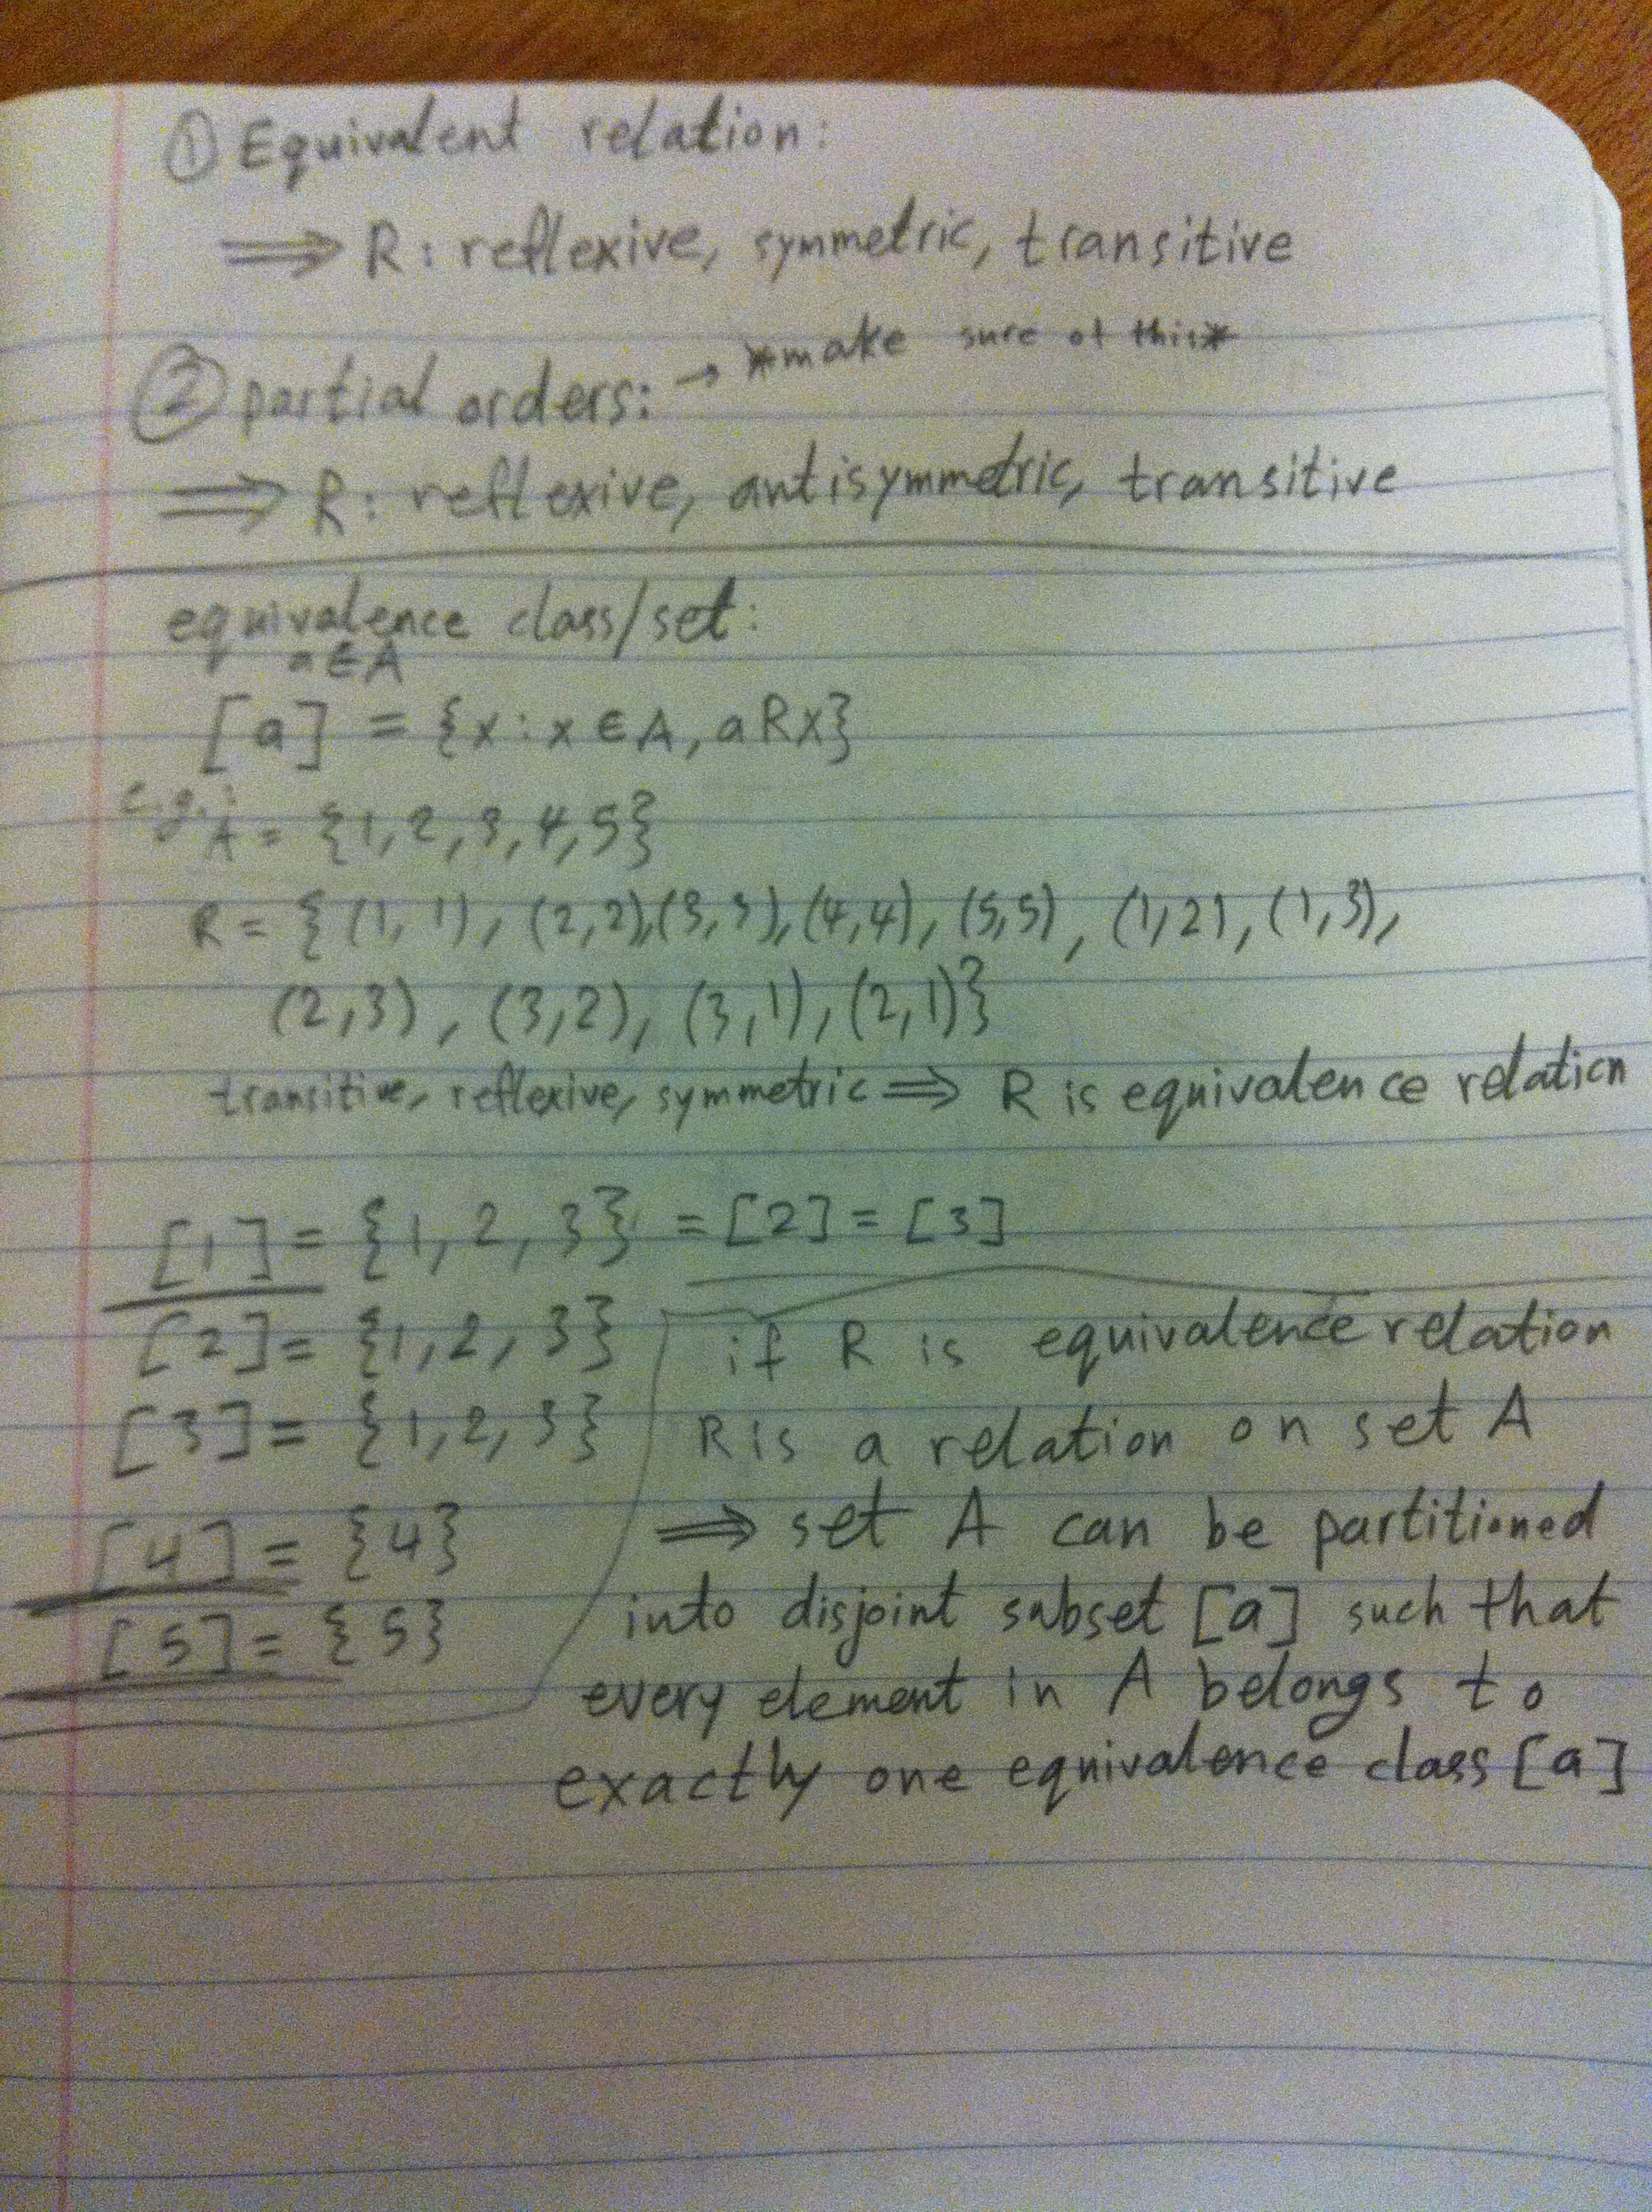 ① Equivalent relation:
⟹ R: reflexive, symmetric, transitive
② partial orders: → *make sure of this*
⟹ R: reflexive, antisymmetric, transitive
equivalence class/set:
a∈A
[a] = {x : x ∈ A, aRx}
e.g.:
A = {1, 2, 3, 4, 5}
R = {(1, 1), (2,2),(3,3),(4,4), (5,5), (1,2), (1,3),
(2,3), (3,2), (3,1), (2,1)}
transitive, reflexive, symmetric ⟹ R is equivalence relation
[1] = {1, 2, 3} = [2] = [3]
[2] = {1, 2, 3}
[3] = {1, 2, 3}
[4] = {4}
[5] = {5}
if R is equivalence relation
R is a relation on set A
⟹ set A can be partitioned
into disjoint subset [a] such that
every element in A belongs to
exactly one equivalence class [a]